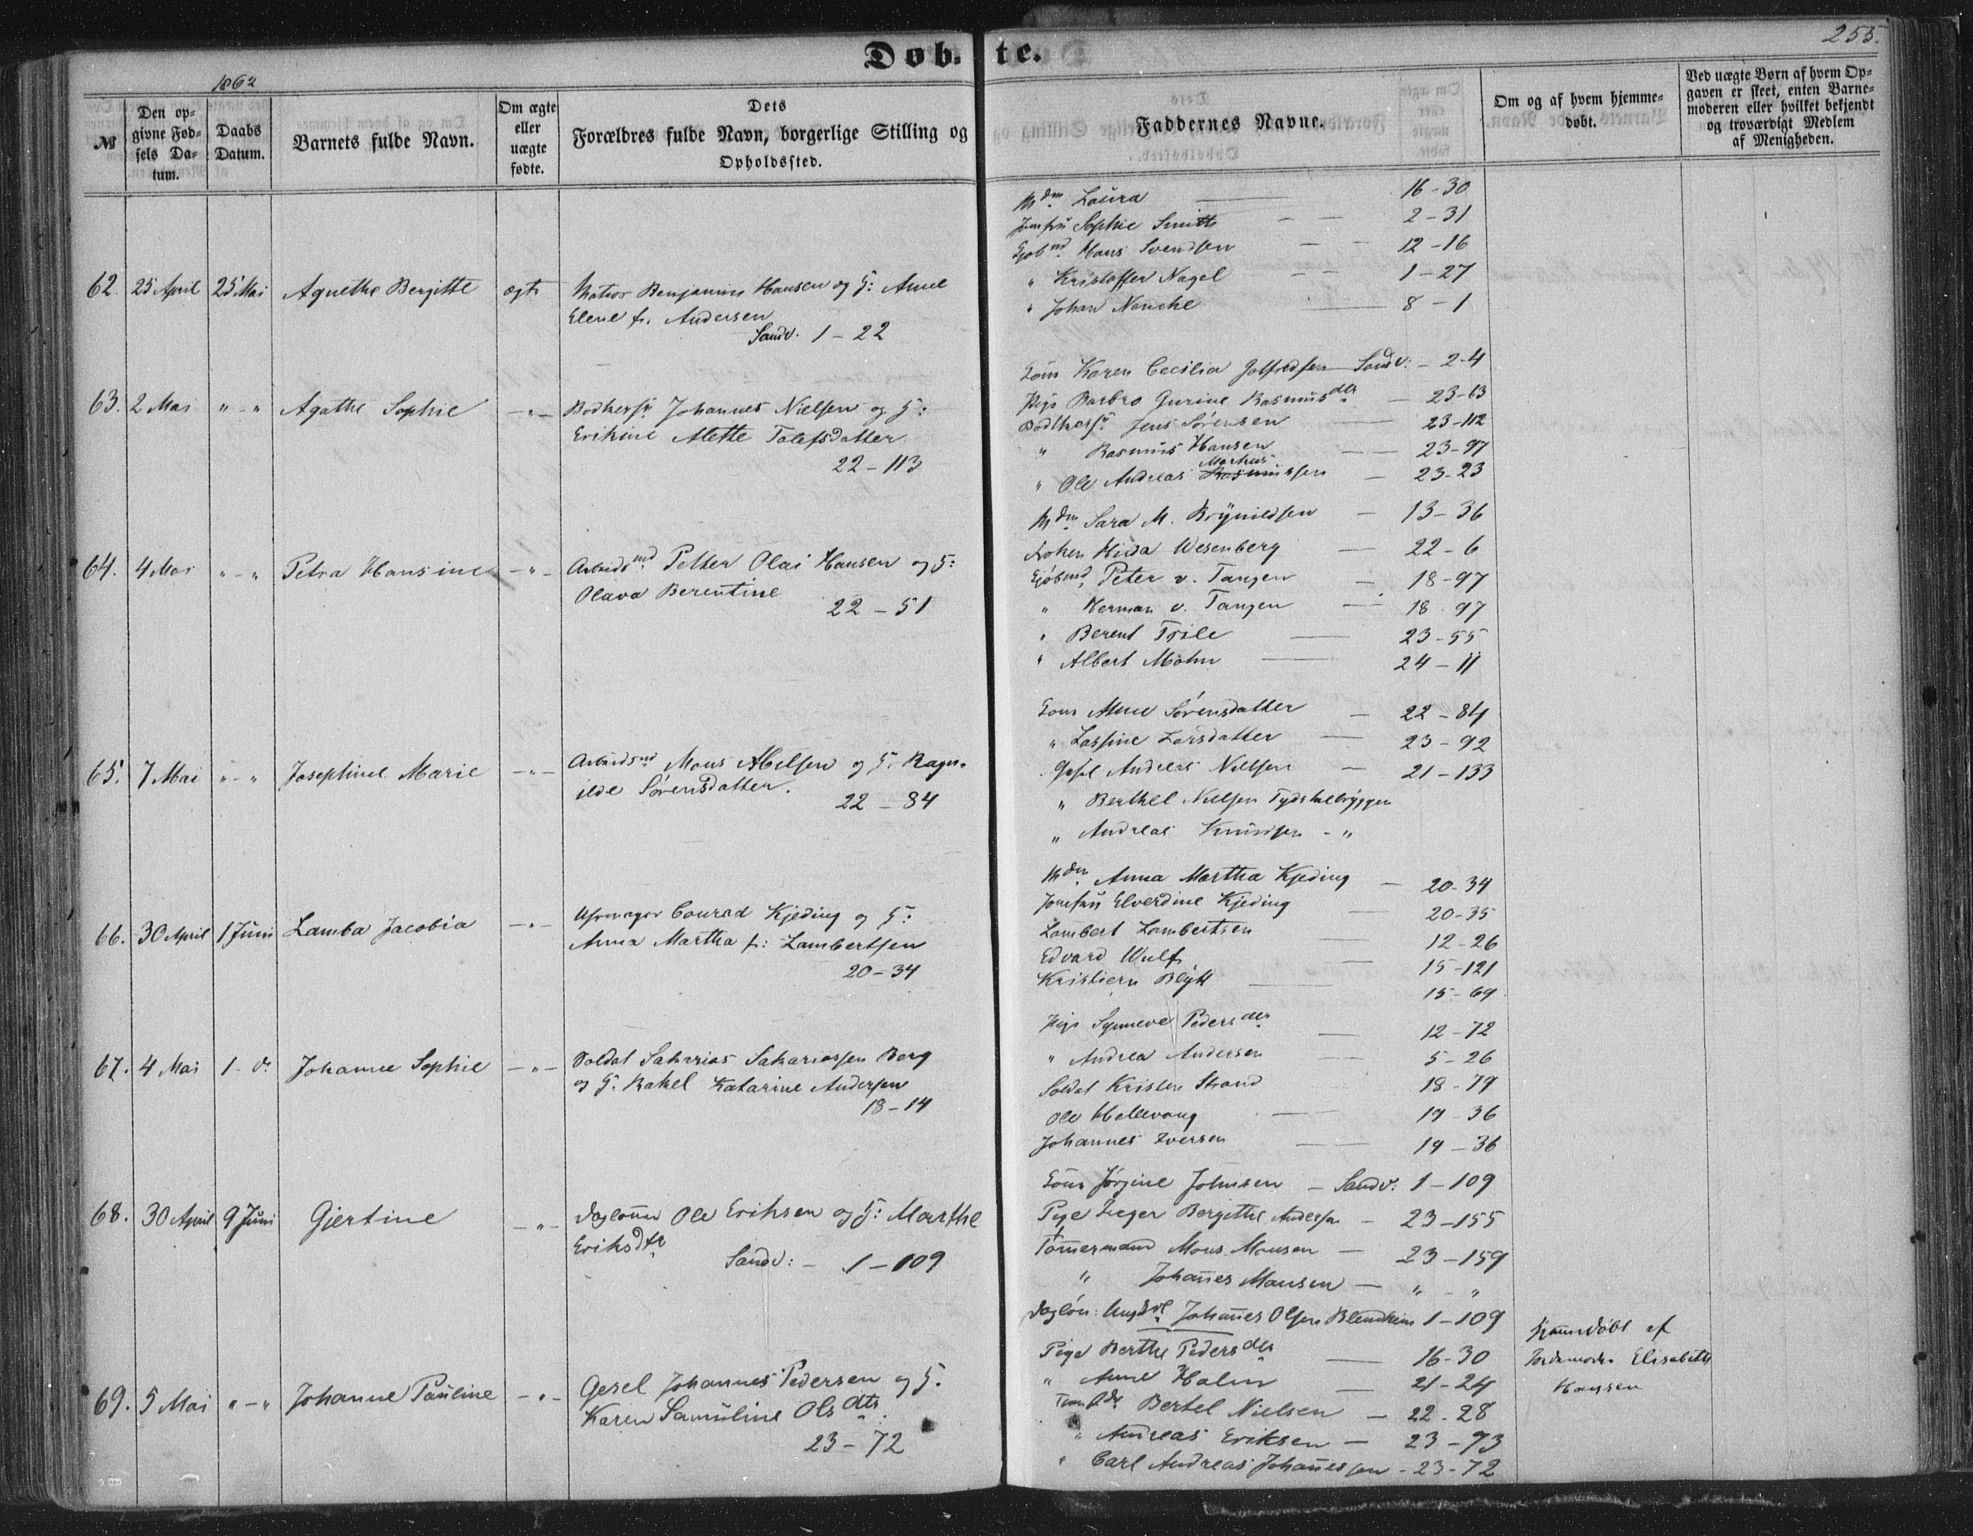 Døb.te.
255.
1862
№
Den op-
givne Fød-
sels Da-
tum.
Daabs
Datum.
Barnets fulde Navn.
Om ægte
eller
uægte
fødte.
Dets
Forældres fulde Navn, borgerlige Stilling og
Opholdssted.
Faddernes Navne.
Om og af hvem hjemme-
døbt.
Ved uægte Børn af hvem Op-
gaven er skeet, enten Barne-
moderen eller hvilket bekjendt
og troværdigt Medlem
af Menigheden.
Mdm Laura 16-30
Jomfru Sophie Smith 2-31
Gjøbmd Hans Svendsen 12-16
" Kristoffer Nagel 1-27
" Johan Nencke 8-1
62. 25 April 25 Mai Agnethe Bergitte ægt. Matros Benjamin Hansen og G: Anne
Elene f. Andersen
Sandv. 1-22
Kone Karen Cecilia Sandv: 2-4
63. 2 Mai " - " Agathe Sophie - " - Bødkersv Johannes Nielsen og G:
Erikine Mette Tolefsdatter
22-113
Pige Barbro Gurine Rasmusdtr 23-63
Bødkersv. Jens Sørensen 23-112
" Rasmus Hansen 23-97
" Ole Andreas 23-23
Mdm Sara M. Brynildsen 13-36
64. 4 Mai " - " Petra Hansine - " - Arbeidsmd Petter Olai Hansen og G:
Olava Berentine
22-51
Wesenberg 22-6
Gjøbmd Peter v. Tangen 18-97
" Herman v. Tangen 18-97
" Berent Friele 23-55
" Albert Mohn 24-11
Kone Anne Sørensdatter 22-84
" Lassine Larsdatter 23-92
65. 7 Mai " - " Josephine Marie - " - Arbeidsmd Mons Abelsen og G. Ragn-
ilde Sørensdatter.
22-84
Gesel Andreas Nielsen 21-133
" Berthel Nielsen Tydskebryggen
" Andreas Knudsen - "
Mdm Anna Martha Kjeding 20-34
Jomfru Elverdine Kjeding 20-35
66. 30 April 1 Juni Lamba Jacobia - " - Uhrmager Conrad Kjeding og G:
Anna Martha f: Lambertsen
20-34
Lambert Lambertsen 12-26
Edvard Wulf 15-121
Kristiern Blytt 15-69
Pige Synneve Pedersdtr 12-72
" Andrea Andersen 5-26
67. 4 Mai 1 - d. Johanne Sophie - " - Soldat Sakarias Sakariassen Berg
og G. Rakel Katarine Andersen
18-14
Soldat Kristen Strand 18-79
Ole Hellevang 19-36
Johannes Iversen 19-36
Kone Jørgine Johnsen - Sandv: 1-109
68. 30 April 9 Juni Gjertine - " - Dagløнner Ole Eriksen og G: Marthe
Eriksdtr
Sandv: - 1-109
Pige Bergithe Andersen 23-155
Tømmermand Mons Monsen - 23-159
" Johannes Monsen - " - "
Dagløn: Johannes Olsen 1-109
Pige Berthe Pedersdtr 16-30
Hjemmedøbt af
Jordemoder Elisabeth
Hansen
69. 5 Mai " - " Johanne Pauline - " - Gesel Johannes Pedersen og G.
Karen Samuline Olsdtr
23-72
" Anne Holm 21-24
Bertel Nielsen - 22-28
" Andreas Eriksen - 23-93
" Carl Andreas Johannessen - 23-72